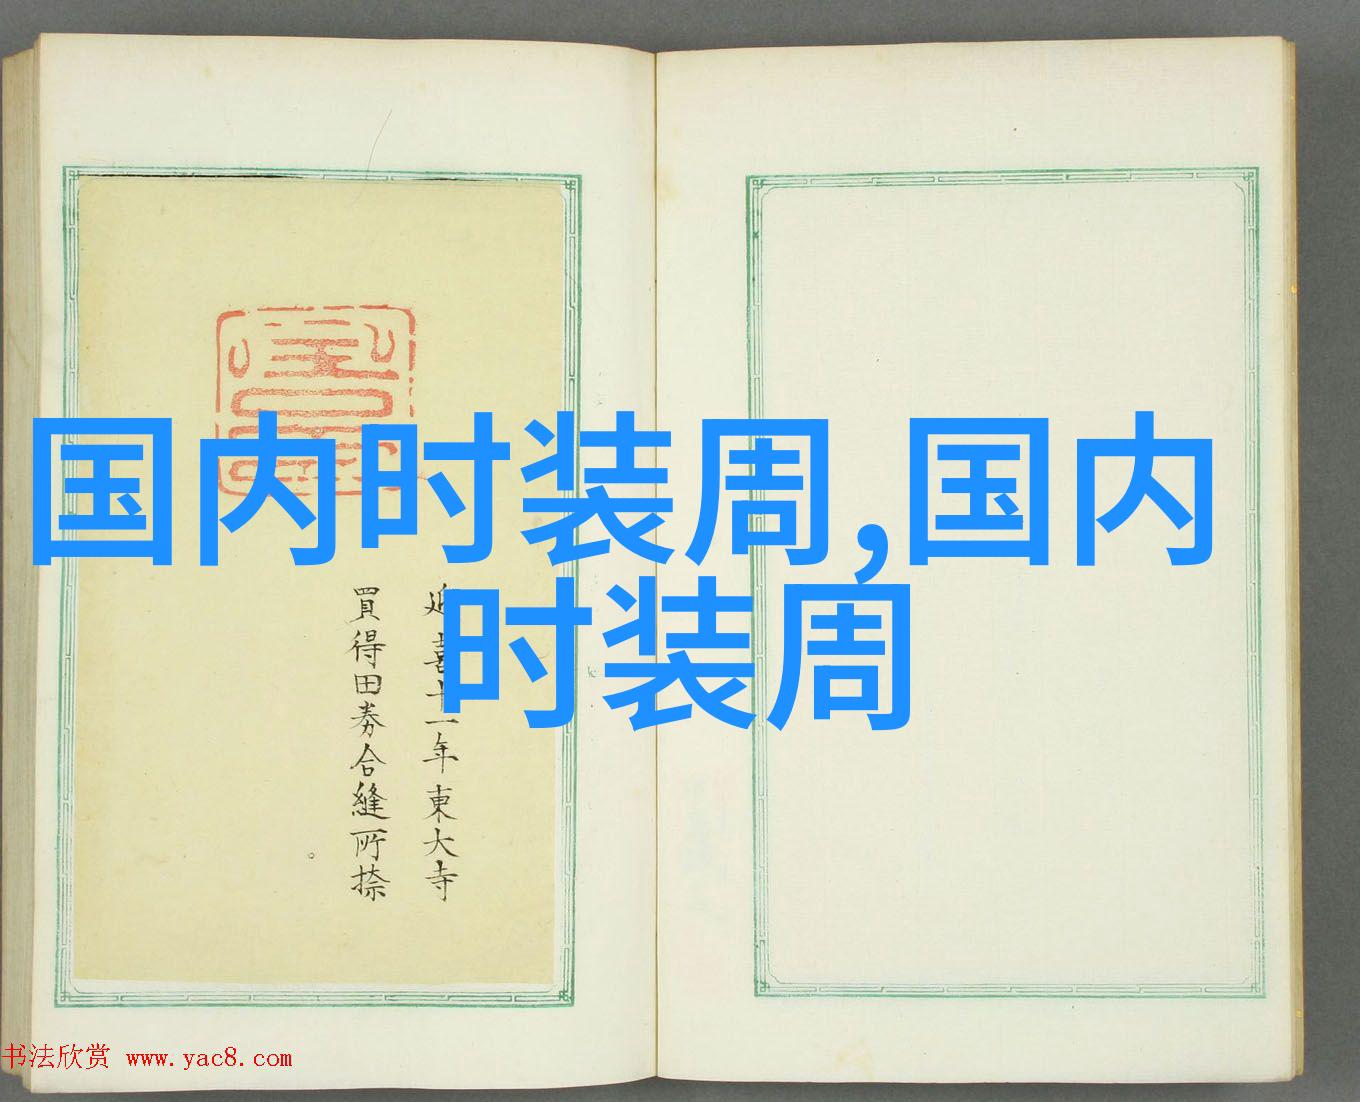 国内时装周,国内
时装周
延喜十一年東大寺
買得田券合縫所捺
书法欣赏 www.yac8.com